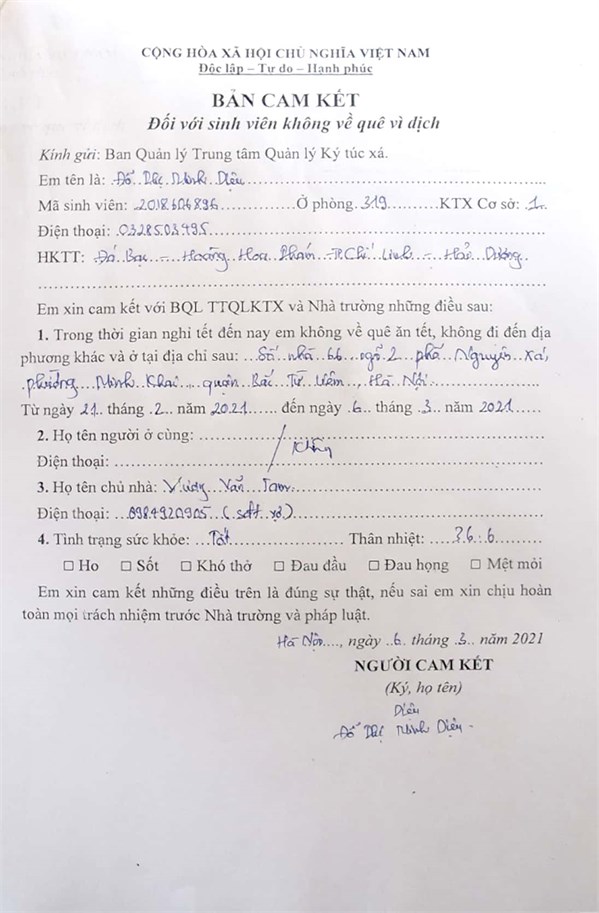 CỘNG HÒA XÃ HỘI CHỦ NGHĨA VIỆT NAM
Độc lập – Tự do – Hạnh phúc
BẢN CAM KẾT
Đối với sinh viên không về quê vì dịch
Kính gửi: Ban Quản lý Trung tâm Quản lý Ký túc xá.
Em tên là: Đỗ Thị Minh Diệu
Mã sinh viên: 2018604896 Ở phòng: 319 KTX Cơ sở: 1
Điện thoại: 0328503495
HKTT: Đá Bạc - Hoàng Hoa Thám - TP. Chí Linh - Hải Dương
Em xin cam kết với BQL TTQLKTX và Nhà trường những điều sau:
1. Trong thời gian nghỉ tết đến nay em không về quê ăn tết, không đi đến địa
phương khác và ở tại địa chỉ sau: Số nhà 66 ngõ 2 phố Nguyên Xá,
phường Minh Khai, quận Bắc Từ Liêm, Hà Nội
Từ ngày 21 tháng 2 năm 2021 đến ngày 6 tháng 3 năm 2021
2. Họ tên người ở cùng: Không
Điện thoại:
3. Họ tên chủ nhà: Văn Tam
Điện thoại: 0984920905
4. Tình trạng sức khỏe: Tốt Thân nhiệt: 36.6
☐ Ho ☐ Sốt ☐ Khó thở ☐ Đau đầu ☐ Đau họng ☐ Mệt mỏi
Em xin cam kết những điều trên là đúng sự thật, nếu sai em xin chịu hoàn
toàn mọi trách nhiệm trước Nhà trường và pháp luật.
Hà Nội, ngày 6 tháng 3 năm 2021
NGƯỜI CAM KẾT
(Ký, họ tên)
Diệu
Đỗ Thị Minh Diệu